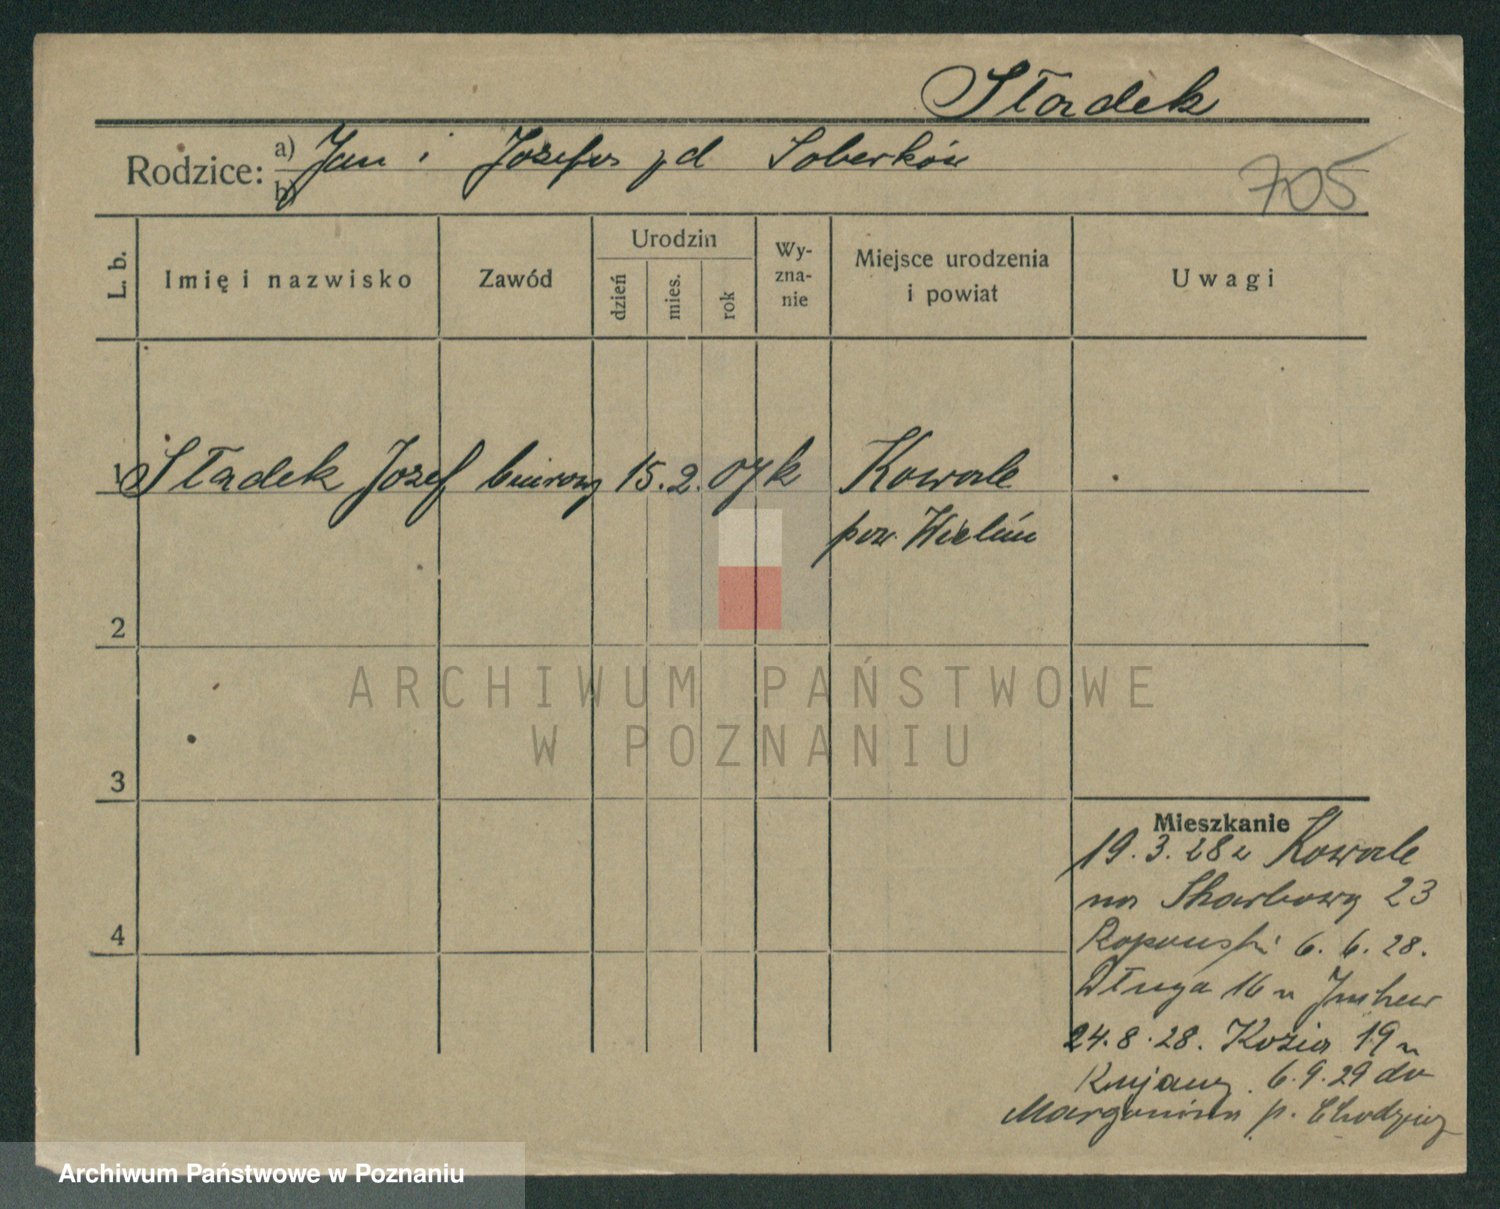 Sładek
Rodzice: a) Jan i Józefa z d Soberków
b)
705
L. b.
Imię i nazwisko
Zawód
Urodzin
dzień
mies.
rok
Wy-
zna-
nie
Miejsce urodzenia
i powiat
Uwagi
1 Sładek Józef biurowy 15. 2. 07 k Kowale
pow. Wieluń
2
3
4
ARCHIWUM PAŃSTWOWE
W POZNANIU
Mieszkanie
19. 3. 28 z Kowale
na Skarbowy 23
6. 6. 28.
Długa 16 u
24. 8. 28. Kozia 19 u
6. 9. 29 do
Margonina p. Chodzież
Archiwum Państwowe w Poznaniu